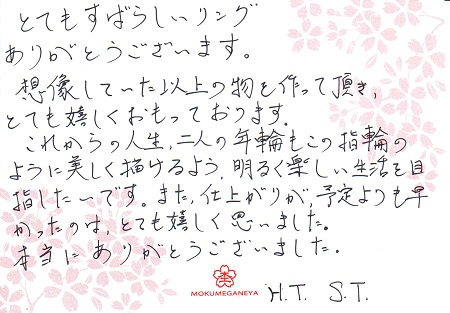 とてもすばらしいリング
ありがとうございます。
想像していた以上の物を作って頂き、
とても嬉しくおもっております。
これからの人生、二人の年輪もこの指輪の
ように美しく描けるよう、明るく楽しい生活を目
指したいです。また、仕上がりが、予定よりも早
かったのは、とても嬉しく思いました。
本当にありがとうございました。
MOKUMEGANEYA
H.T. S.T.